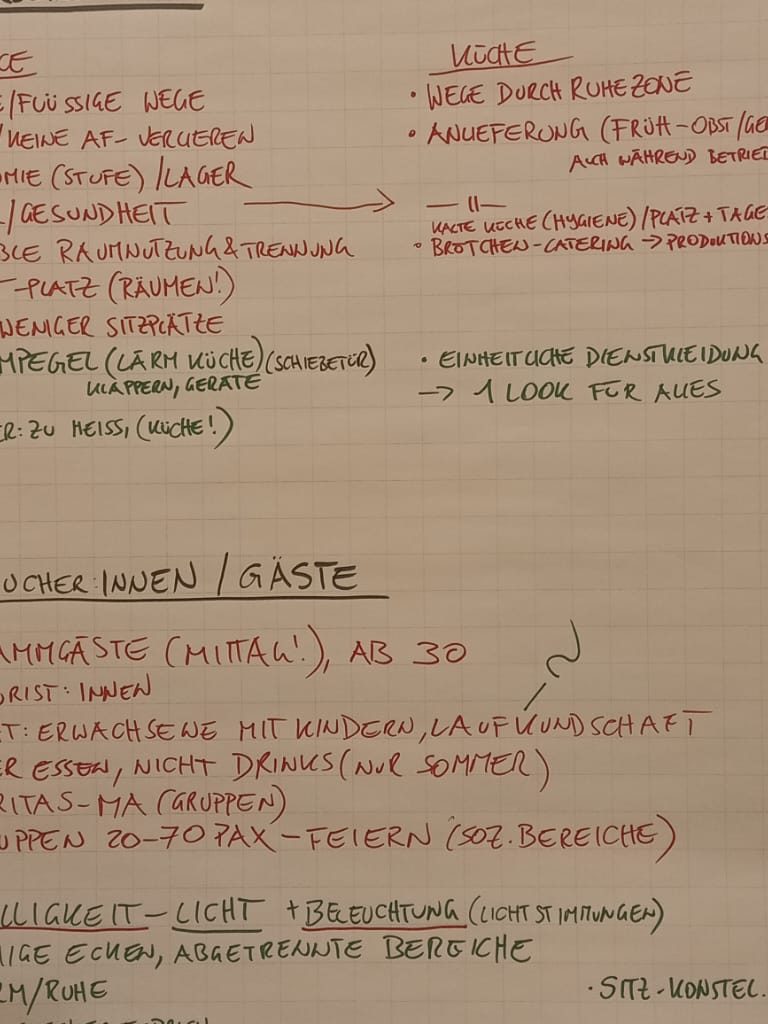 CE
E/FLÜSSIGE WEGE
/KEINE AF-VERLIEREN
MIE (STUFE) /LAGER
L/GESUNDHEIT
BLE RAUMNUTZUNG & TRENNUNG
T-PLATZ (RÄUMEN!)
WENIGER SITZPLÄTZE
MPEGEL (LÄRM KÜCHE) (SCHIEBETÜR)
KLAPPERN, GERÄTE
ER: ZU HEISS, (KÜCHE!)
KÜCHE
• WEGE DURCH RUHEZONE
• ANLIEFERUNG (FRÜH-OBST/GE
AUCH WÄHREND BETRIEB
— 11 —
KALTE KÜCHE (HYGIENE) / PLATZ + TAGE
• BRÖTCHEN-CATERING → PRODUKTIONS
• EINHEITLICHE DIENSTKLEIDUNG
→ 1 LOOK FÜR ALLES
UCHER:INNEN / GÄSTE
AMMGÄSTE (MITTAG!), AB 30
ORIST:INNEN
T: ERWACHSENE MIT KINDERN, LAUFKUNDSCHAFT
ER ESSEN, NICHT DRINKS (NUR SOMMER)
RITAS-MA (GRUPPEN)
UPPEN 20-70 PAX - FEIERN (SOZ. BEREICHE)
LLIGKEIT - LICHT + BELEUCHTUNG (LICHTSTIMMUNGEN)
IGE ECKEN, ABGETRENNTE BEREICHE
RM/RUHE
• SITZ-KONSTEL.